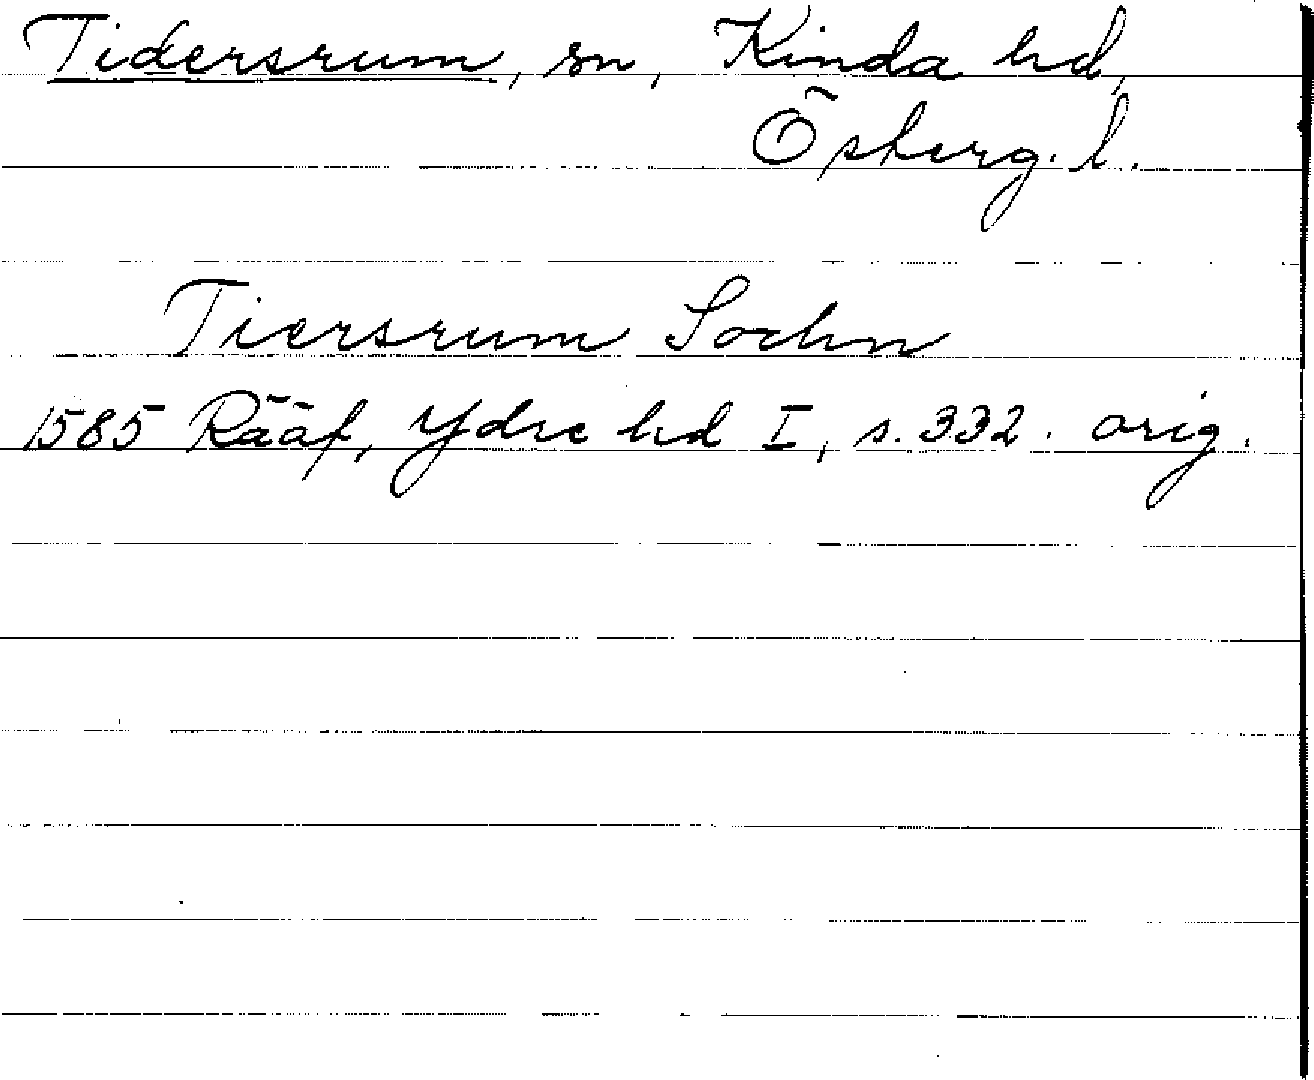 Tidersrum, sn, Kinda hd,
Östergl.
Tiersrum Sochn
1585 Rääf, Ydre hd I, s. 332. orig.